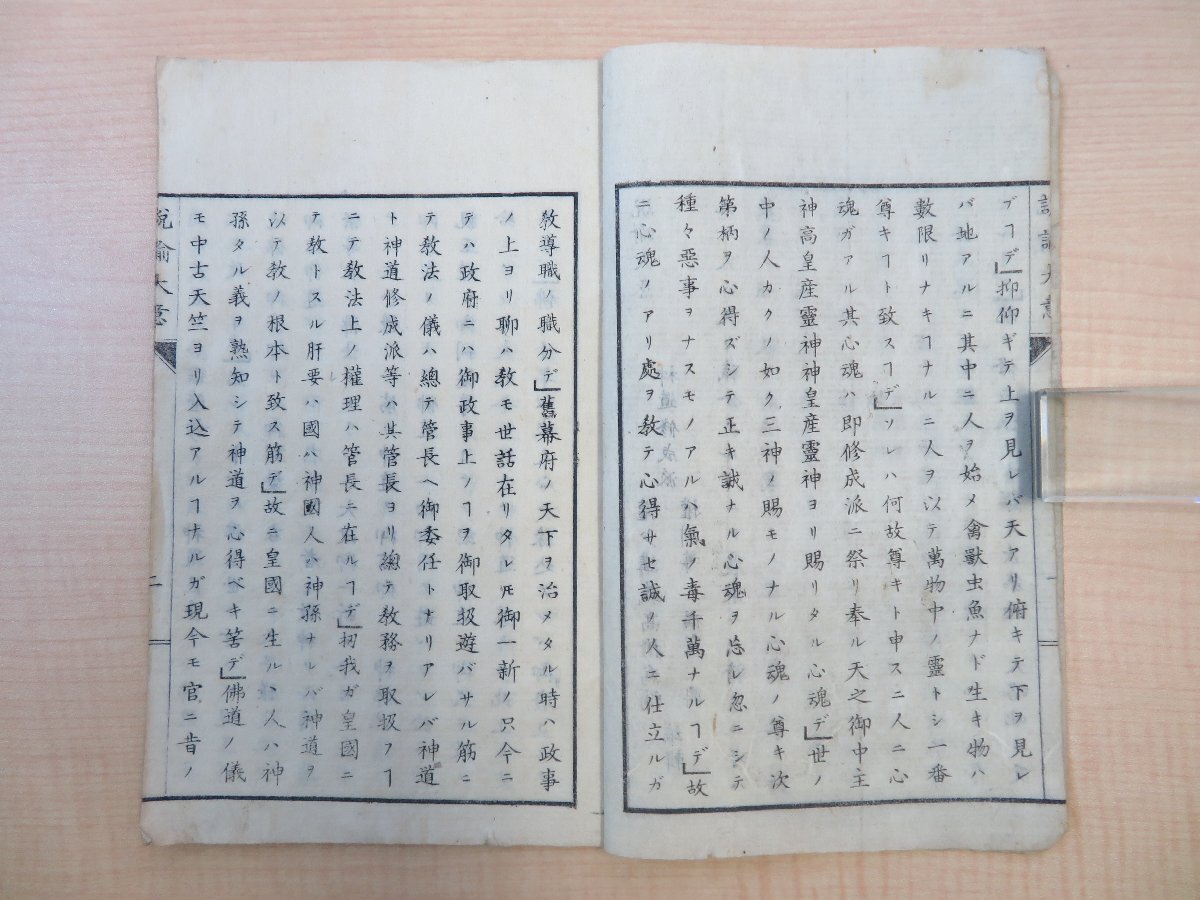 ブヿデ」抑仰ギテ上ヲ見レバ天アリ俯キテ下ヲ見レ
バ地アルニ其中ニ人ヲ始メ禽獸虫魚ナド生キ物ハ
數限リナキヿナルニ人ヲ以テ萬物中ノ靈トシ一番
尊キヿト致スヿデ」ソレハ何故尊キト申スニ人ニ心
魂ガアル其心魂ハ即修成派ニ祭リ奉ル天之御中主
神高皇産靈神神皇産靈神ヨリ賜リタル心魂デ」世ノ
中ノ人カクノ如ク三神ノ賜モノナル心魂ノ尊キ次
第柄ヲ心得ズシテ正キ誠ナル心魂ヲ忘レ忽ニシテ
種々惡事ヲナスモノアルハ氣ノ毒千萬ナルヿデ」故
ニ心魂ノアリ處ヲ教テ心得サセ誠ノ人ニ仕立ルガ
教導職ノ職分デ」舊幕府ノ天下ヲ治メタル時ハ政事
ノ上ヨリ聊ハ教モ世話在リタレ𪜈御一新ノ只今ニ
テハ政府ニハ御政事上ノヿヲ御取扱遊バサル筋ニ
テ教法ノ儀ハ總テ管長ヘ御委任トナリアレバ神道
ト神道修成派等ハ其管長ヨリ總テ教務ヲ取扱フヿ
ニテ教法上ノ權理ハ管長ニ在ルヿデ」扨我ガ皇國ニ
テ教トスル肝要ハ國ハ神國人ハ神孫ナレバ神道ヲ
以テ教ノ根本ト致ス筋デ」故ニ皇國ニ生ルヽ人ハ神
孫タル義ヲ熟知シテ神道ヲ心得ベキ筈デ」佛道ノ儀
モ中古天竺ヨリ入込アルヿナルガ現今モ官ニ昔ノ
說諭大意
二